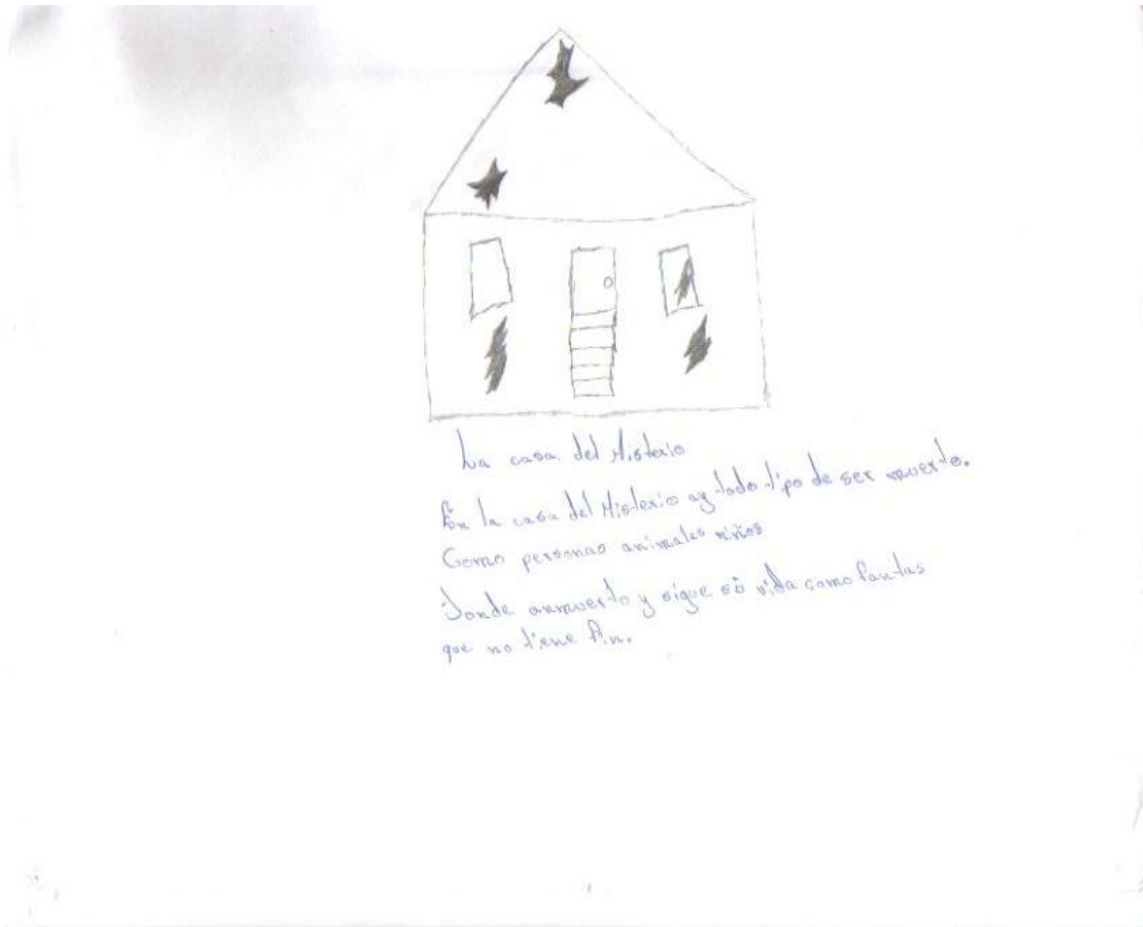 La casa del Misterio
En la casa del Misterio ay todo tipo de ser muerto.
Como personas animales niños
Donde anmuerto y sigue sú vida como fantas
que no tiene fin.